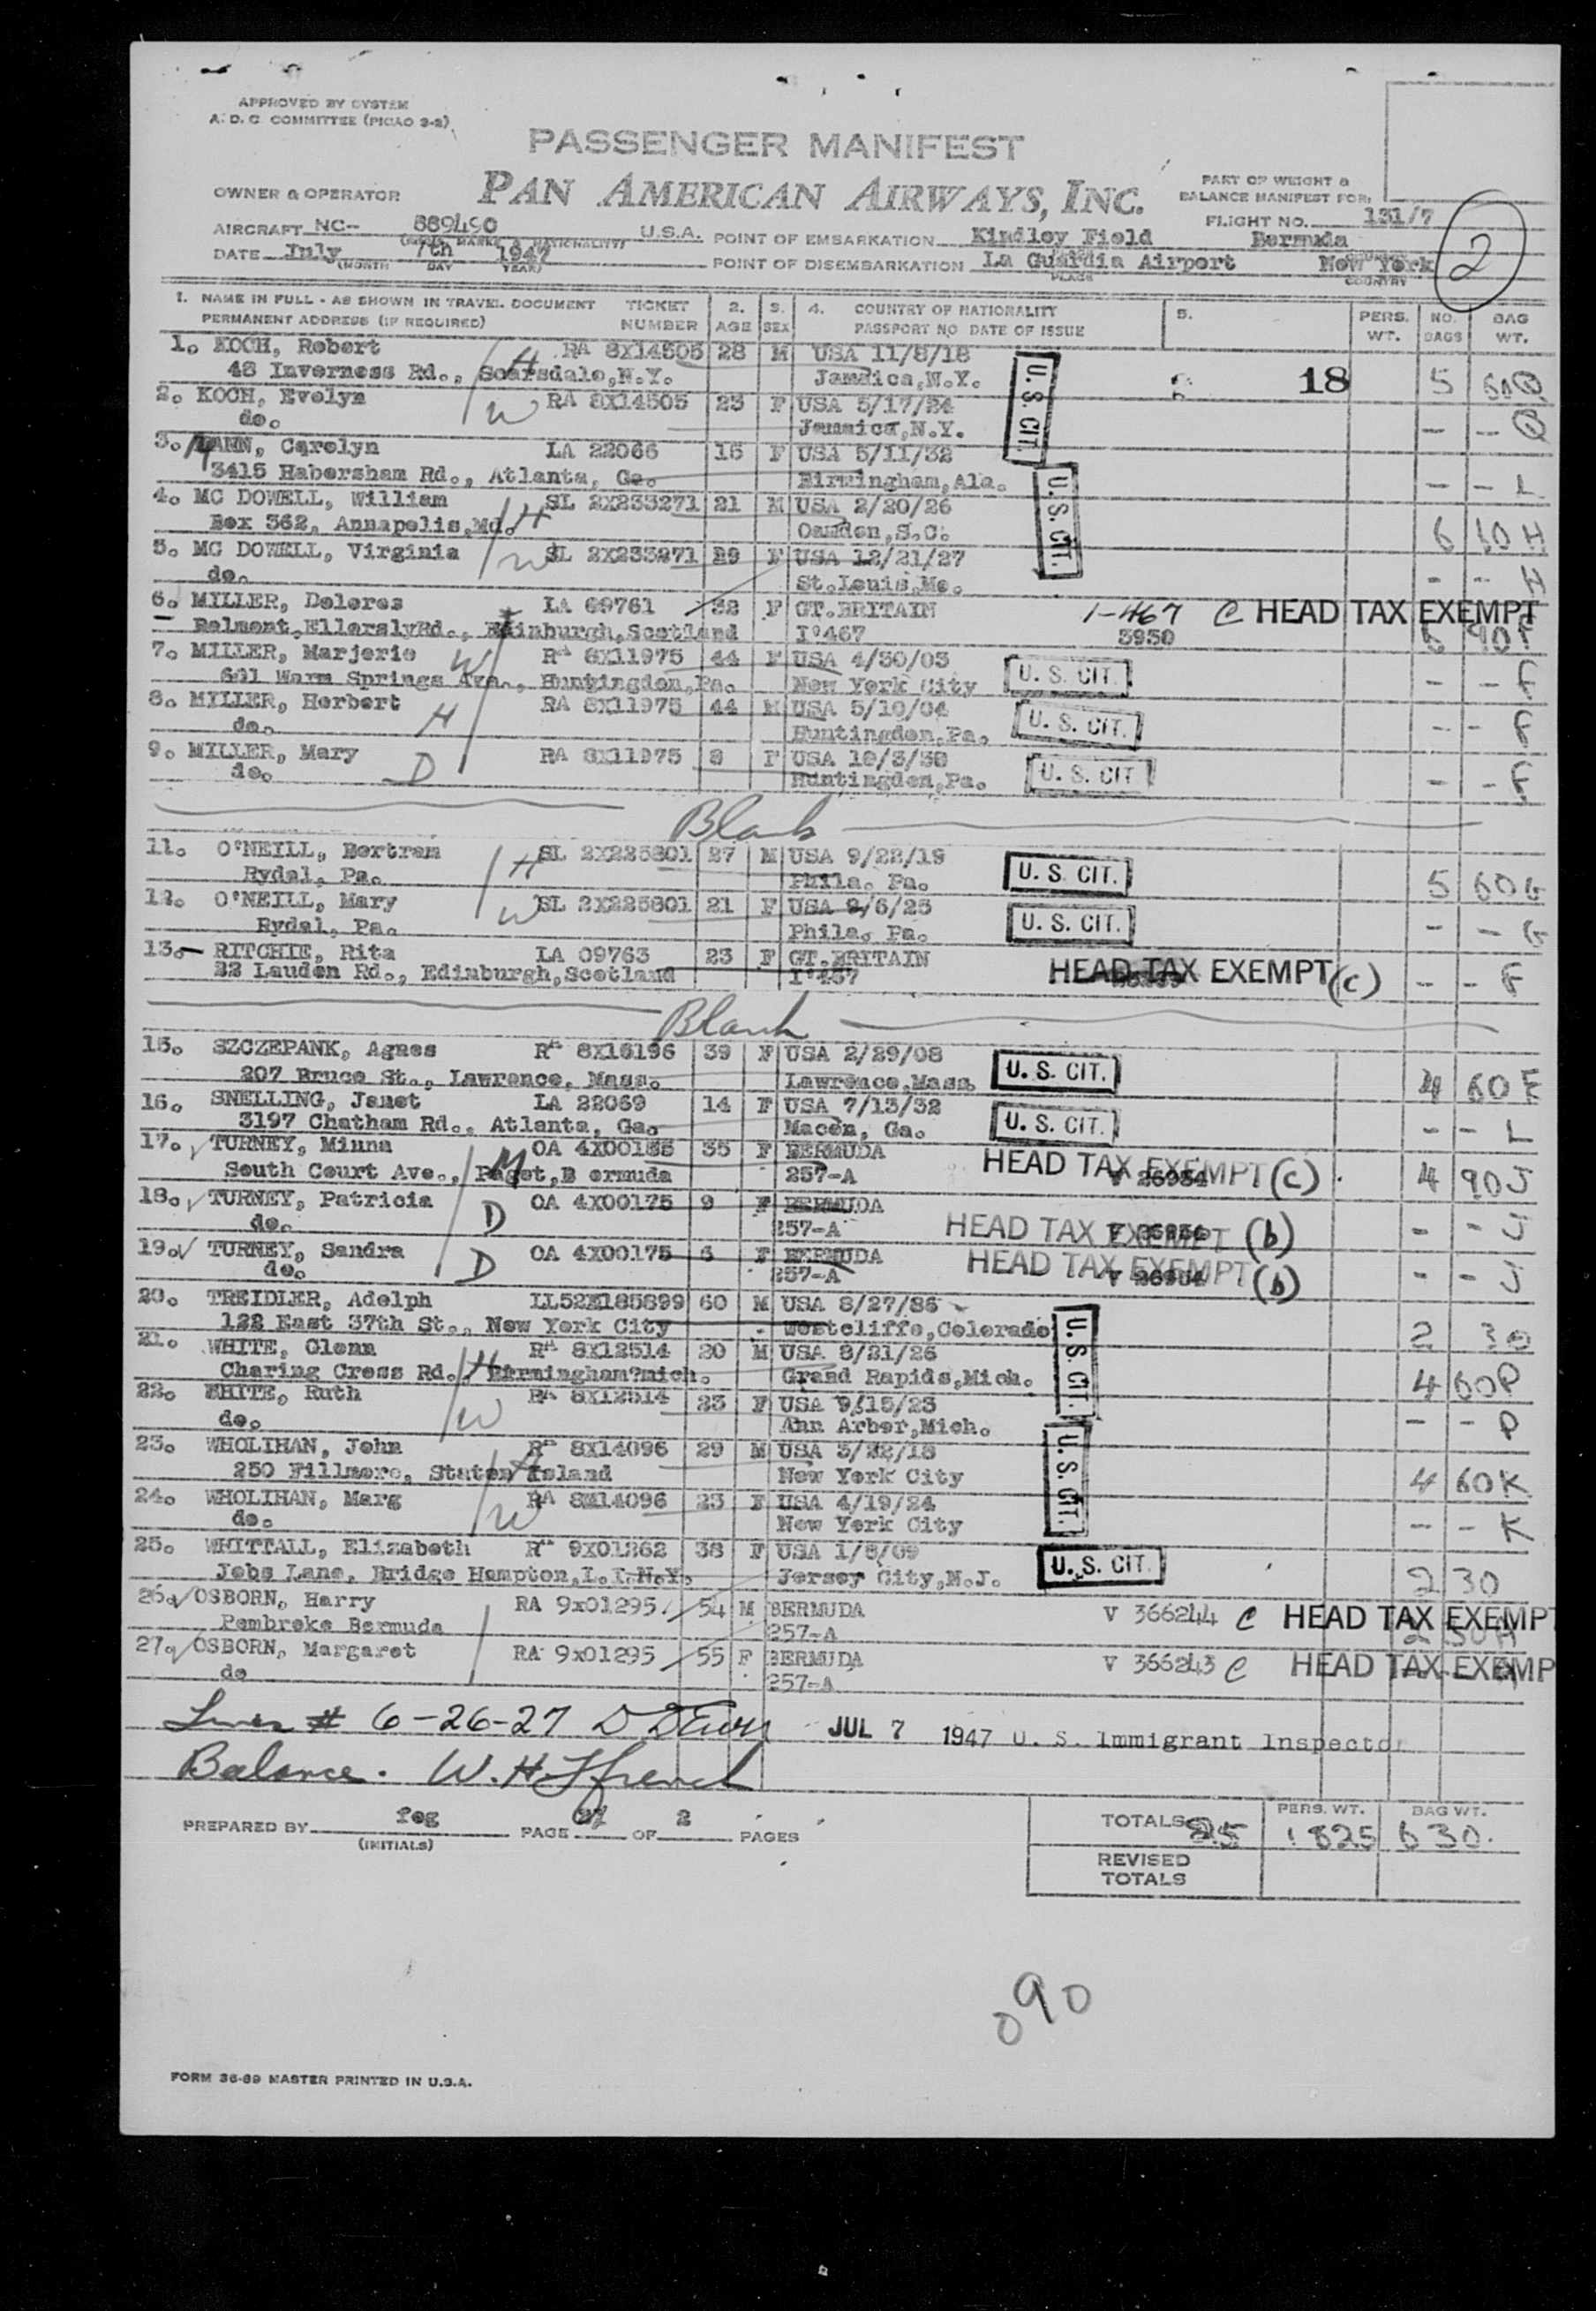 APPROVED BY SYSTEM
A. D. C. COMMITTEE (PICAO 2-2)
PASSENGER MANIFEST
OWNER & OPERATOR PAN AMERICAN AIRWAYS, INC.
PART OF WEIGHT &
BALANCE MANIFEST FOR:
AIRCRAFT NC-- U.S.A. POINT OF EMBARKATION Kindley Field Bermuda FLIGHT NO. 131/7
DATE July 7th 1947 POINT OF DISEMBARKATION La Guardia Airport New York 2
(MONTH DAY YEAR) PLACE COUNTRY
1. NAME IN FULL - AS SHOWN IN TRAVEL DOCUMENT TICKET 2. 3. 4. COUNTRY OF NATIONALITY 5. PERS. NO. BAG
PERMANENT ADDRESS (IF REQUIRED) NUMBER AGE SEX PASSPORT NO DATE OF ISSUE WT. BAGS WT.
1. KOCH, Robert H RA 8X14505 28 M USA 11/8/18
48 Inverness Rd., Scarsdale, N.Y. Jamaica, N.Y. U. S. CIT. 18 5 60Q
2. KOCH, Evelyn W RA 8X14505 23 F USA 5/17/24
do. Jamaica, N.Y. -- -- Q
3. Carolyn LA 22066 15 F USA 5/11/32
3415 Habersham Rd., Atlanta, Ga. Birmingham, Ala. U. S. CIT. -- -- L
4. MC DOWELL, William H SL 2X233271 21 M USA 2/20/26
Box 362, Annapolis, Md. Camden, S.C. 6 H
5. MC DOWELL, Virginia W SL 2X233271 F USA 12/21/27
do. St. Louis, Mo. - -- H
6. MILLER, Dolores LA 09761 32 F GT.BRITAIN 1-467 C HEAD TAX EXEMPT
Belmont, EllerslyRd., Edinburgh, Scotland I°467 5950 6 90F
7. MILLER, Marjorie W RA 8X11975 44 F USA 4/30/03
Warm Springs Ave., Huntingdon, Pa. New York City U. S. CIT. - - F
8. MILLER, Herbert H RA 8X11975 44 M USA 5/10/04
do. Huntingdon, Pa. U. S. CIT. - - F
9. MILLER, Mary D RA 8X11975 8 F USA
do. Huntingdon, Pa. U. S. CIT - - F
Blank
11. O'NEILL, Bertram H SL 2X225801 27 M USA 9/22/19
Rydal, Pa. Phila. Pa. U. S. CIT. 5 60G
12. O'NEILL, Mary W SL 2X225801 21 F USA 9/6/25
Rydal, Pa. Phila. Pa. U. S. CIT. - - G
13. RITCHIE, Rita LA 09763 23 F GT.BRITAIN
22 Lauden Rd., Edinburgh, Scotland HEAD TAX EXEMPT (c) - - F
Blank
15. SZCZEPANK, Agnes RA 8X16196 39 F USA 2/29/08
207 Bruce St., Lawrence, Mass. Lawrence, Mass. U. S. CIT. 4 60 E
16. SNELLING, Janet LA 22069 14 F USA 7/13/32
3197 Chatham Rd., Atlanta, Ga. Macon, Ga. U. S. CIT. - - L
17. TURNEY, Minna M OA 35 F BERMUDA
South Court Ave., Paget, B ermuda 257-A HEAD TAX EXEMPT (c) 4 90J
18. TURNEY, Patricia D OA 4X00175 9 F BERMUDA
do. 257-A HEAD TAX EXEMPT (b) - - J
19. TURNEY, Sandra D OA 4X00175 F BERMUDA
do. 257-A HEAD TAX EXEMPT (b) - - J
20. TREIDLER, Adolph 60 M USA 8/27/86
122 East 37th St., New York City Westcliffe, Colorado U. S. CIT. 2 30
21. WHITE, Glenn H RA 8X12514 20 M USA 8/21/26
Charing Cross Rd., Birmingham?mich. Grand Rapids, Mich. 4 60P
22. WHITE, Ruth W RA 8X12514 23 F USA 9/15/23
do. Ann Arbor, Mich. - - P
23. WHOLIHAN, John H RA 8X14096 29 M USA
250 Fillmore, Staten Island New York City U. S. CIT. 4 60K
24. WHOLIHAN, Marg W RA 8X14096 23 F USA 4/19/24
do. New York City - - K
25. WHITTALL, Elizabeth RA 9X01262 38 F USA 1/8/09
Jobs Lane, Bridge Hampton, L.I.N.Y. Jersey City, N.J. U. S. CIT. 2 30
26. OSBORN, Harry RA 9x01295 54 M BERMUDA V 366244 C HEAD TAX EXEMPT
Pembroke Bermuda 257-A
27. OSBORN, Margaret RA 9x01295 55 F BERMUDA V 366243 C HEAD TAX EXEMP
do 257-A
Lines # 6-26-27 JUL 7 1947 U. S. Immigrant Inspector
Balance. W. H. Ffrench
PREPARED BY feg PAGE OF 2 PAGES
(INITIALS)
TOTALS 25 PERS. WT. 1825 BAG WT. 630.
REVISED
TOTALS
090
FORM 36-89 MASTER PRINTED IN U.S.A.